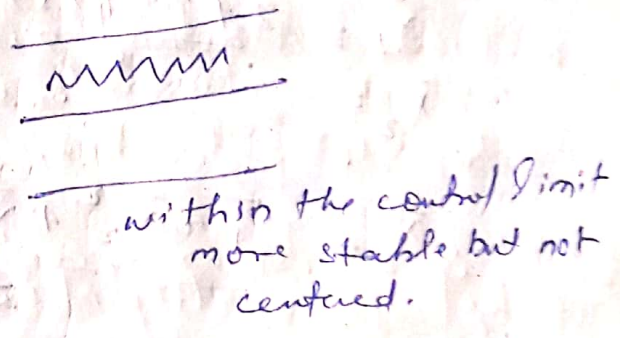 within the control limit
more stable but not
centered.